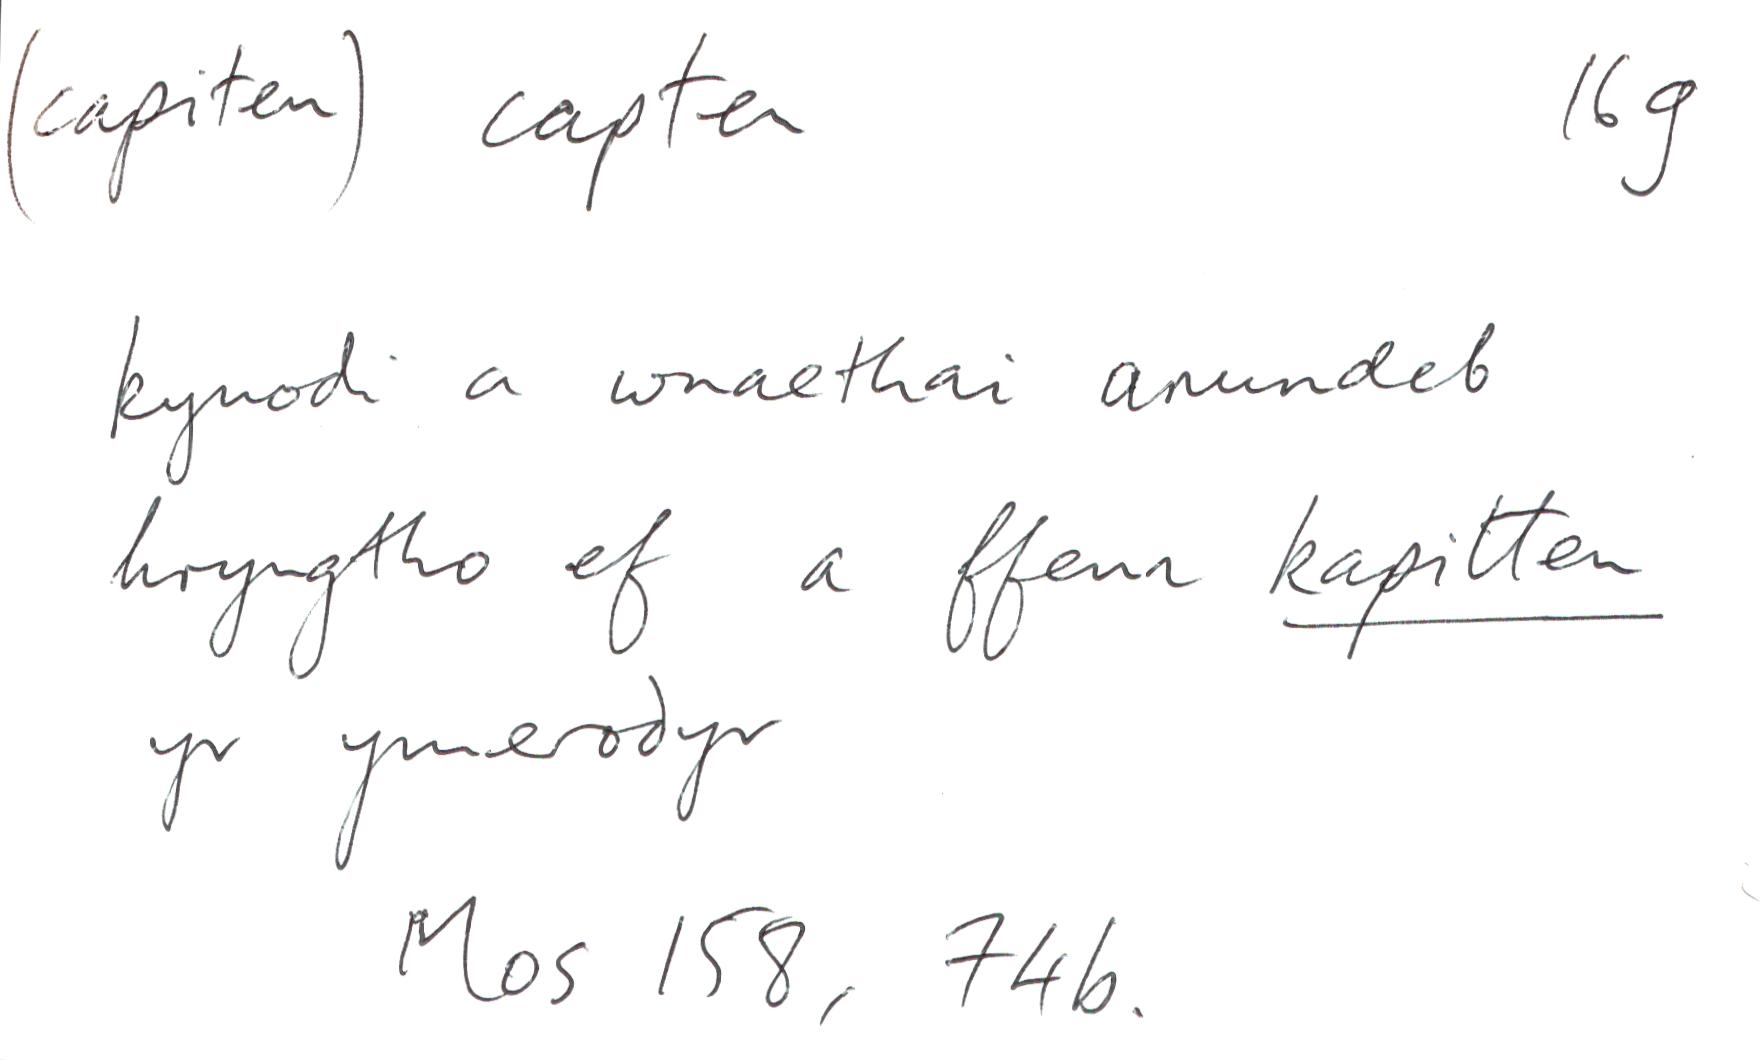 (capiten) capten 16g
kymodi a wnaethai arundeb
hryngtho ef a ffenn kapitten
yr ymerodyr
Mos 158, 74b.